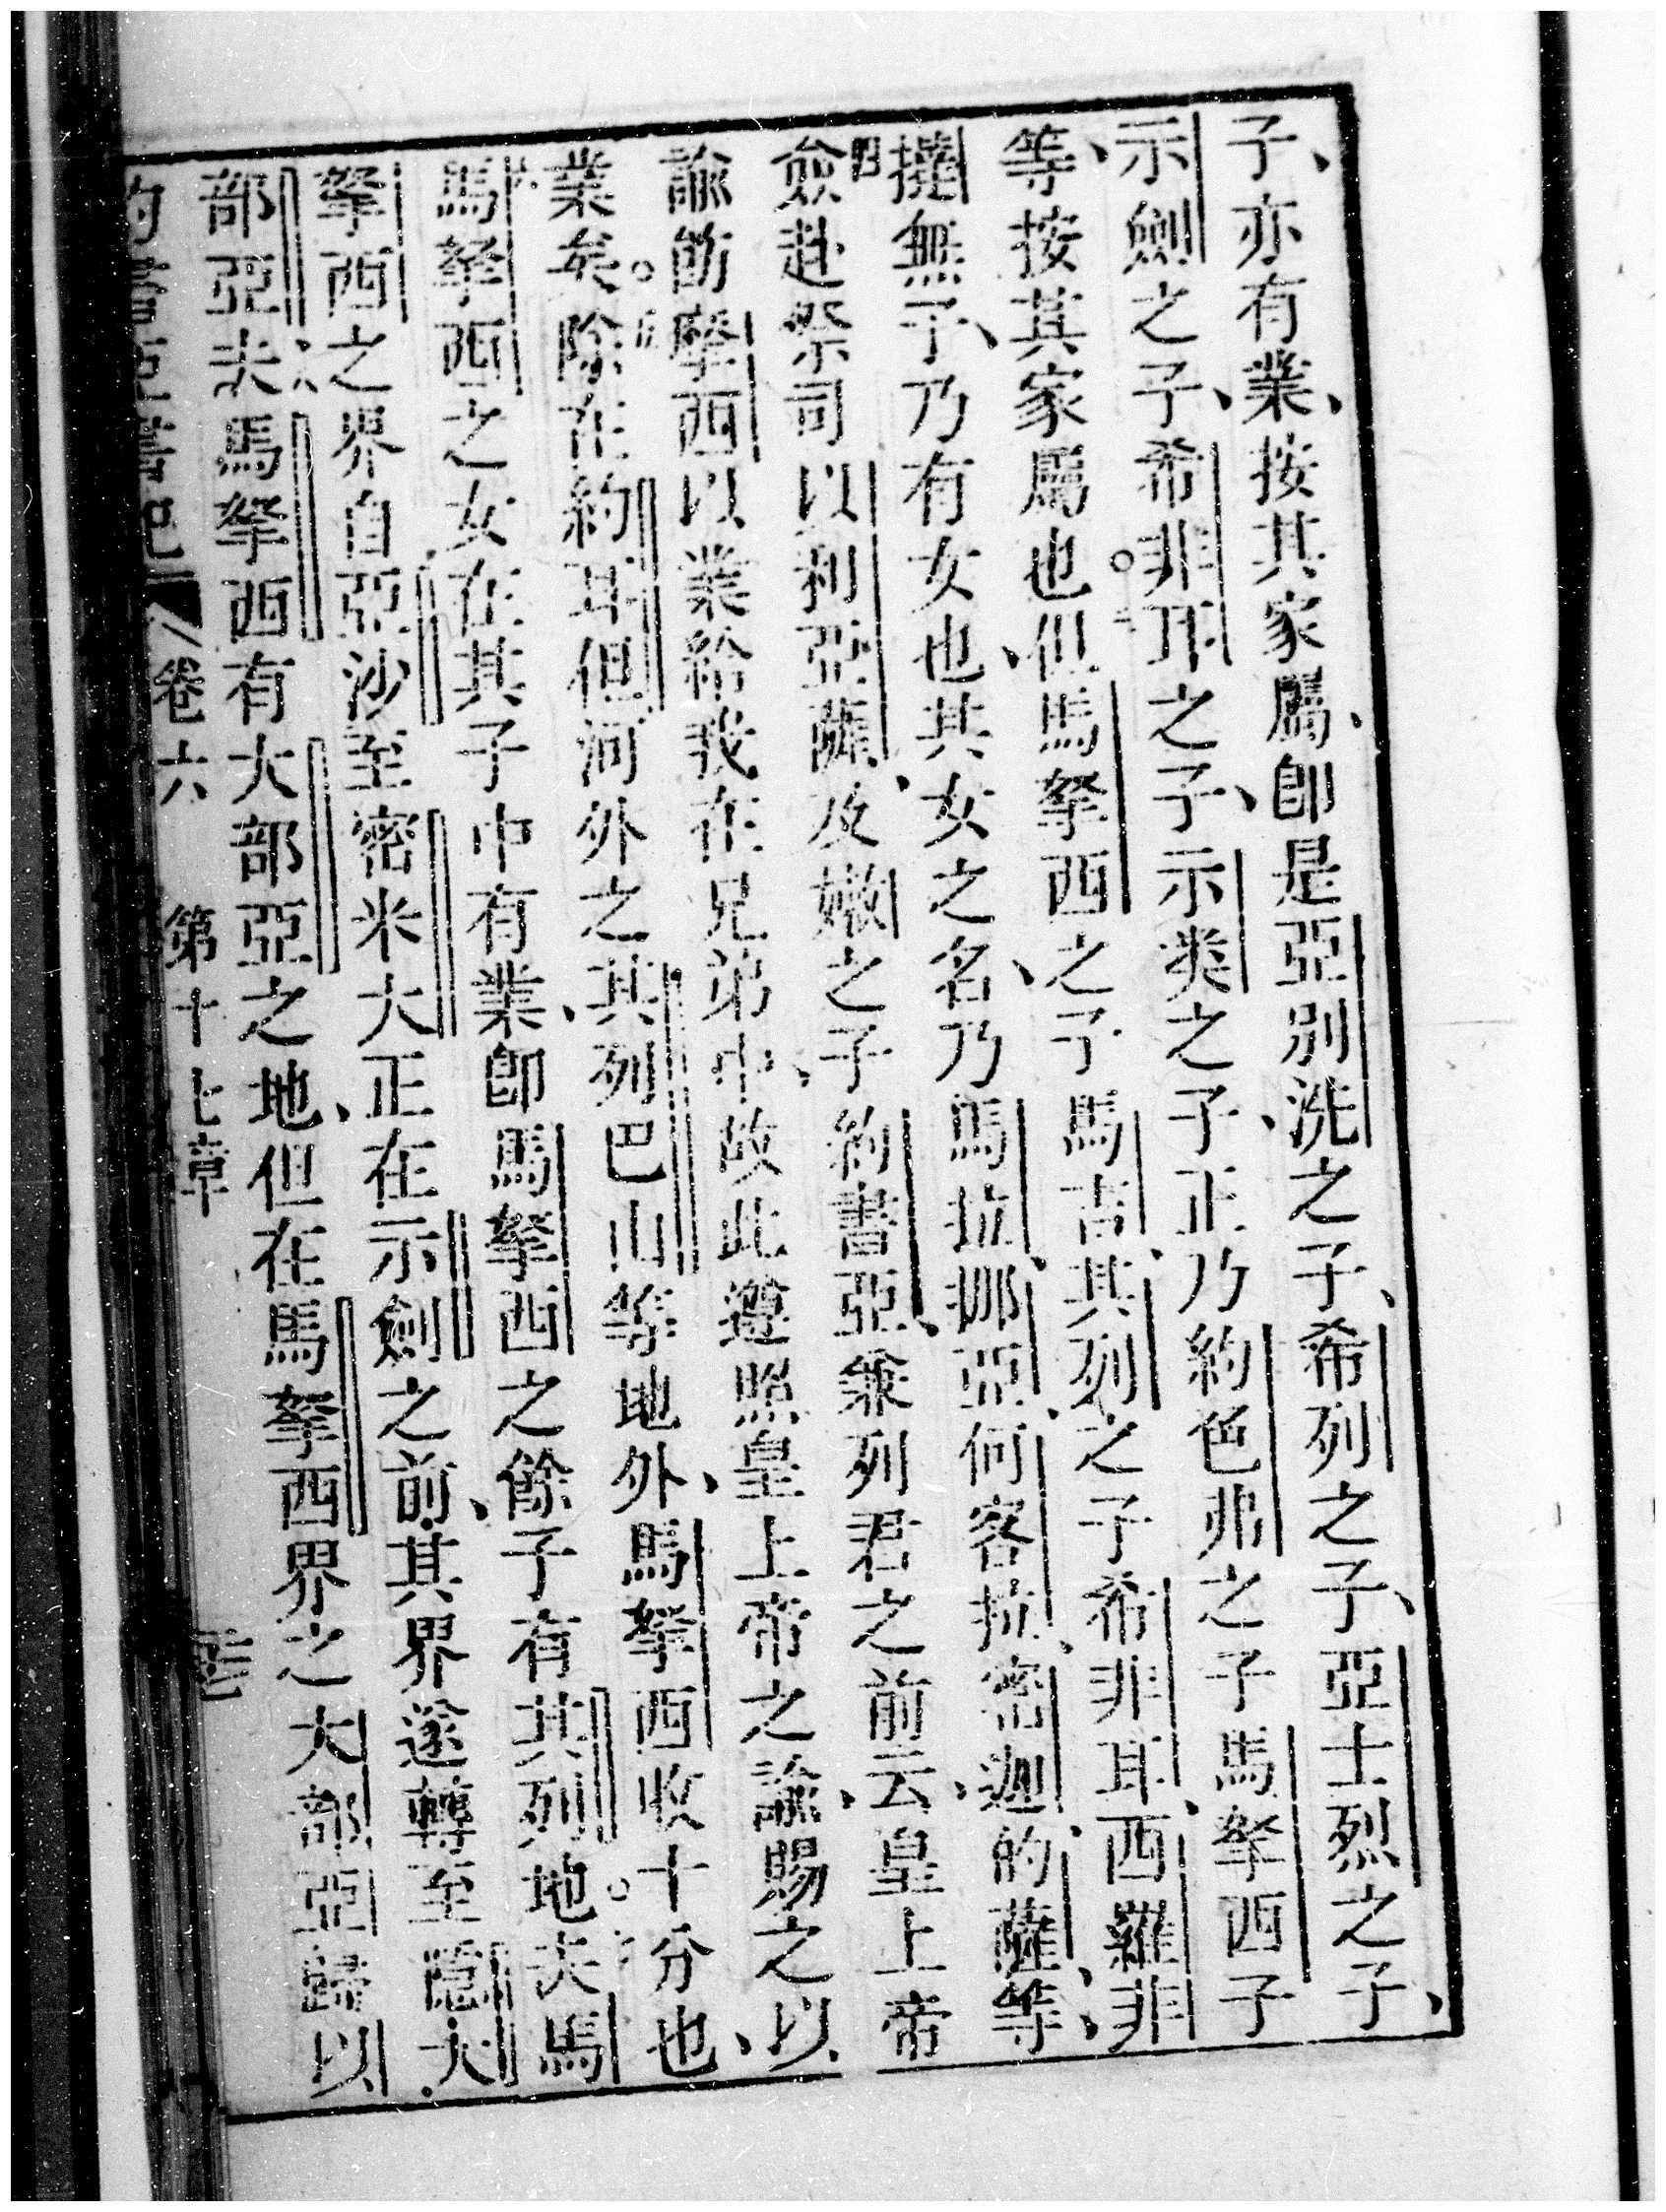 子、亦有業、按其家屬、卽是亞別洗之子、希列之子、亞士烈之子、
示劍之子、希非耳之子、示类之子、正乃約色弗之子馬拏西子
等、按其家屬也。但馬拏西之子馬吉、其列之子希非耳、西羅非
撻無子、乃有女也、其女之名、乃馬拉、挪亞、何客拉、密迦、的薩等、
僉赴祭司以利亞薩、及嫩之子約書亞、兼列君之前云、皇上帝
諭飭摩西以業給我在兄弟中、故此遵照皇上帝之諭、賜之以
業矣。除在約耳但河外之其列巴山等地外、馬拏西收十分也、
馬拏西之女在其子中有業、卽馬拏西之餘子有其列地。夫馬
拏西之界自亞沙至密米大正在示劍之前、其界遂轉至隱大
部亞、夫馬拏西有大部亞之地、但在馬拏西界之大部亞歸以
卷六 第十七章